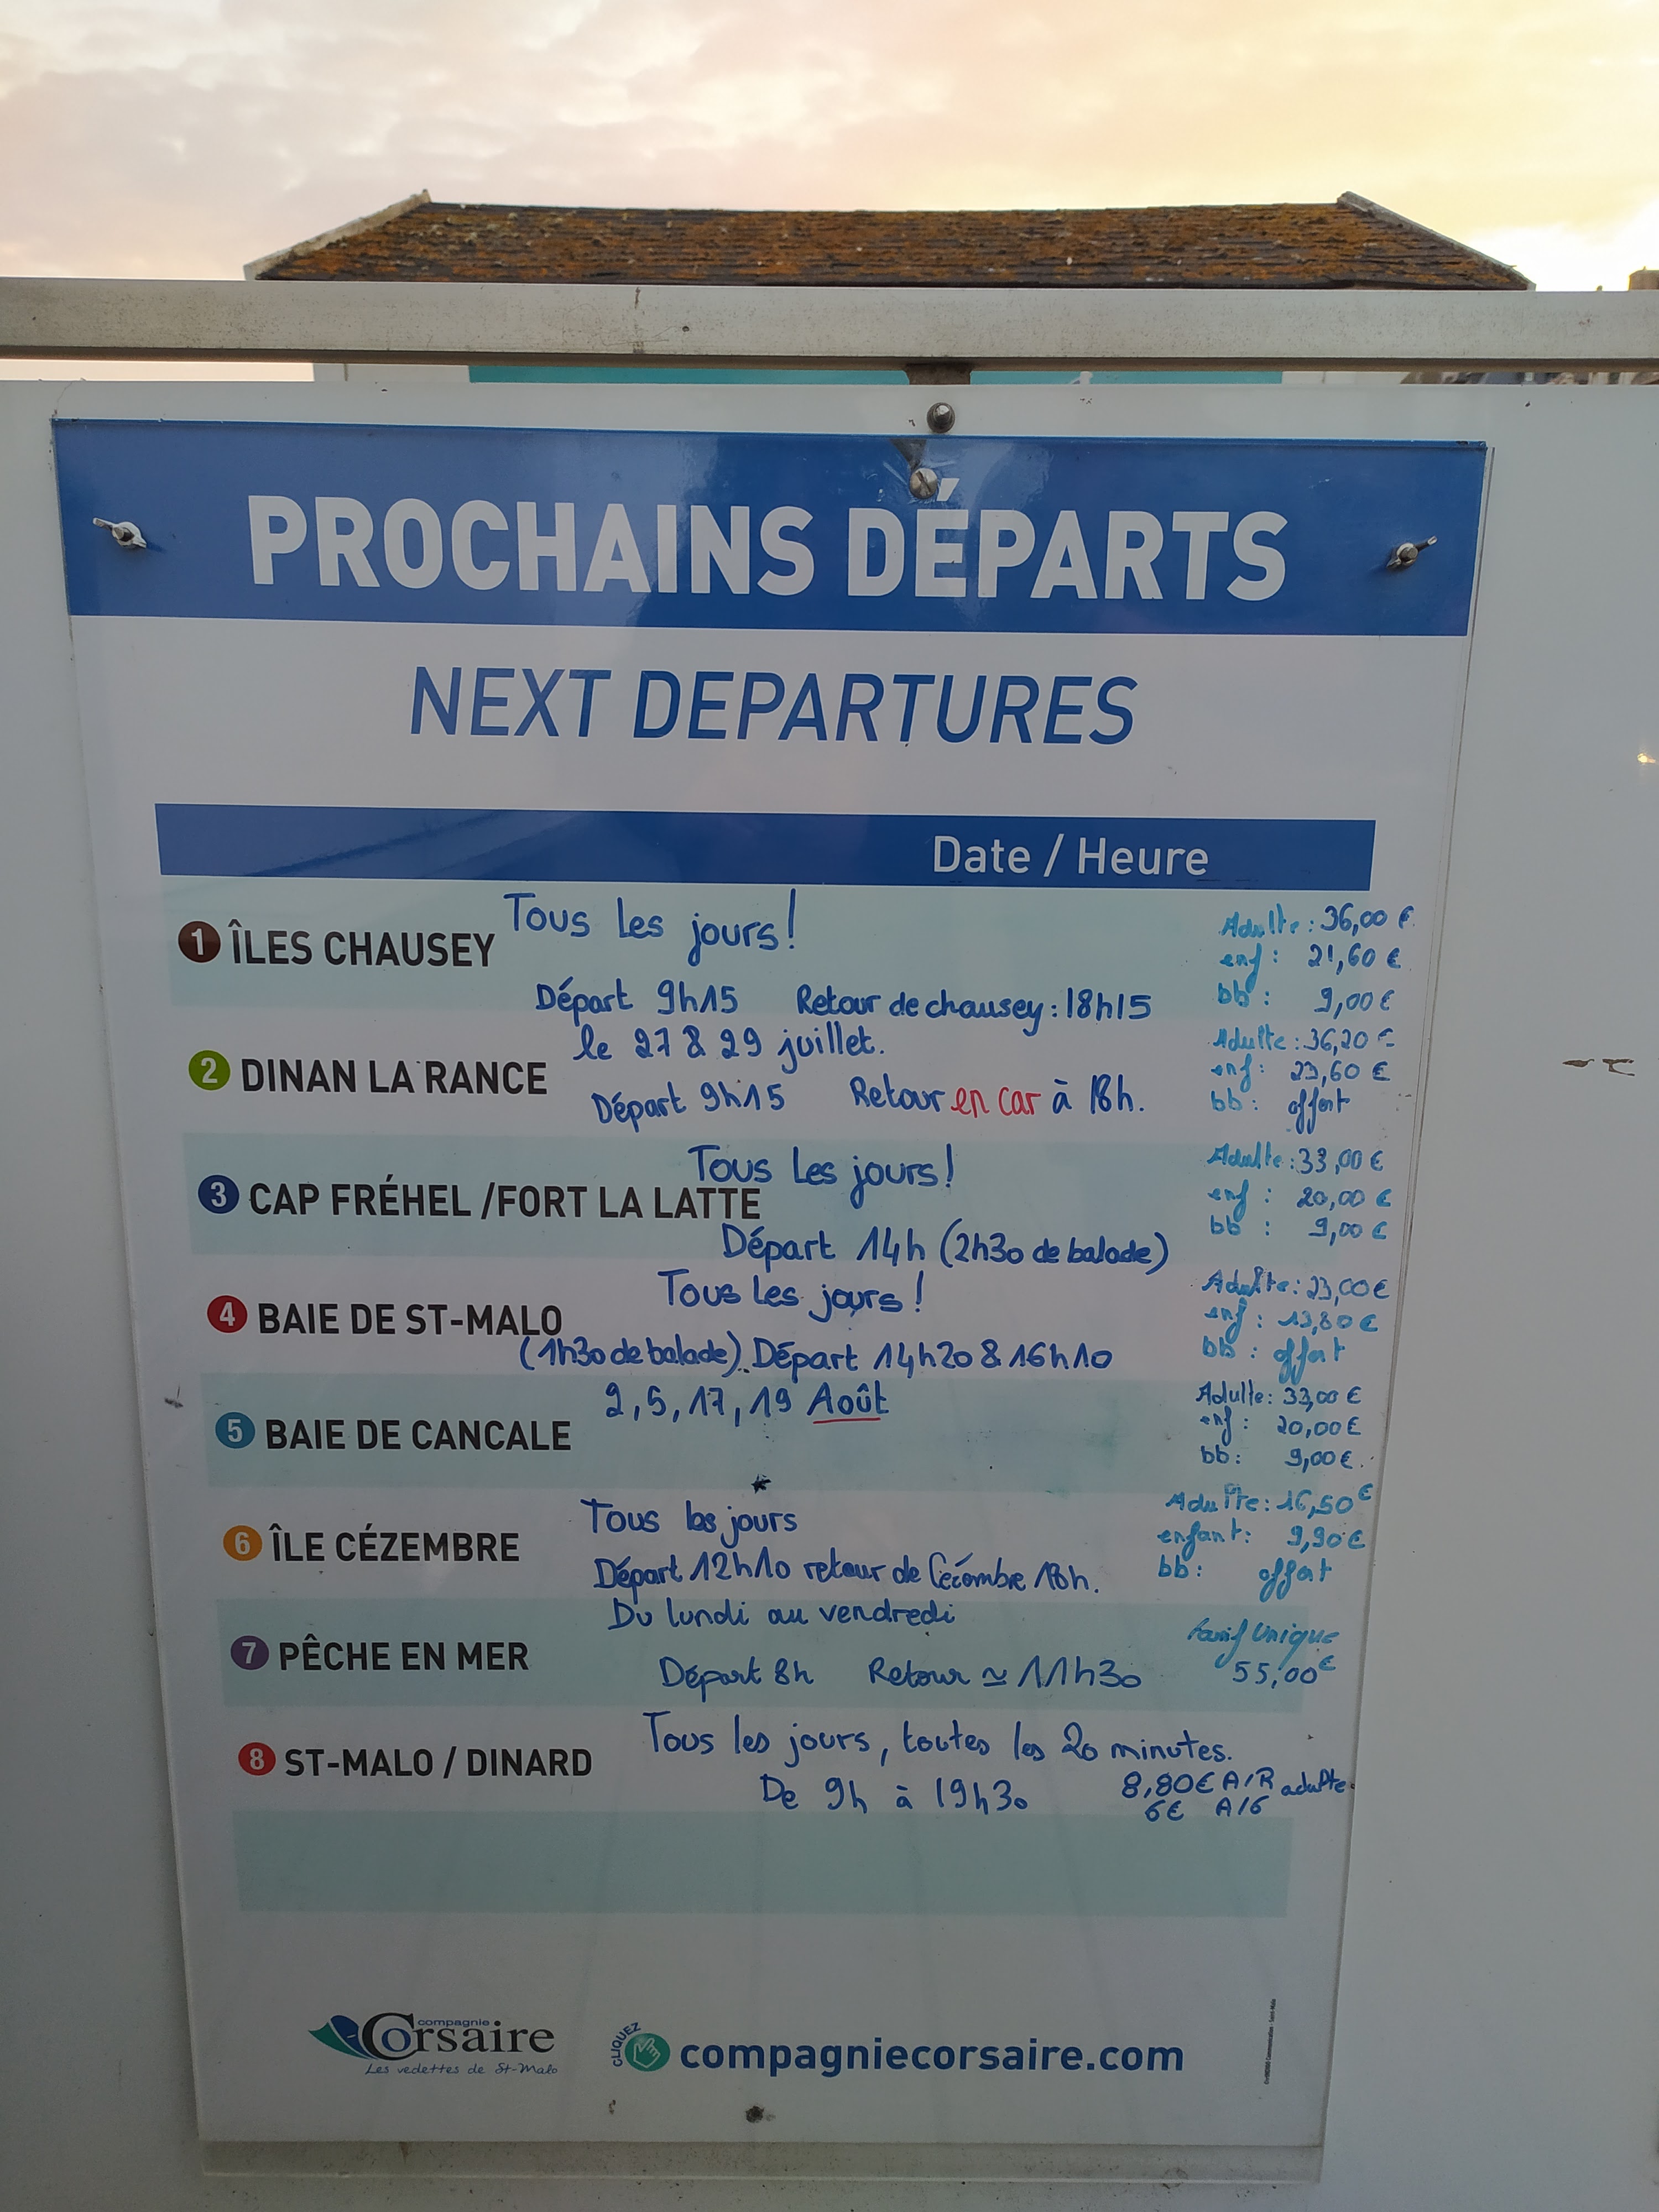 PROCHAINS DÉPARTS
NEXT DEPARTURES
Date / Heure
1 ÎLES CHAUSEY
Tous les jours !
Départ 9h15 Retour de chausey : 18h15
Adulte : 36,00 €
enf : 21,60 €
bb : 9,00 €
2 DINAN LA RANCE
le 27 & 29 juillet.
Départ 9h15 Retour en car à 18h.
Adulte : 36,20 €
enf : 23,60 €
bb : offert
3 CAP FRÉHEL /FORT LA LATTE
Tous les jours !
Départ 14h (2h30 de balade)
Adulte : 33,00 €
enf : 20,00 €
bb : 9,00 €
4 BAIE DE ST-MALO
Tous les jours !
(1h30 de balade). Départ 14h20 & 16h10
Adulte : 23,00 €
enf : 13,80 €
bb : offert
5 BAIE DE CANCALE
2, 5, 17, 19 Août
Adulte : 33,00 €
enf : 20,00 €
bb : 9,00 €.
6 ÎLE CÉZEMBRE
Tous les jours
Départ 12h10 retour de Cézembre 18h.
Adulte : 16,50 €
enfant : 9,90 €
bb : offert
7 PÊCHE EN MER
Du lundi au vendredi
Départ 8h Retour ≃ 11h30
Tarif Unique
55,00 €
8 ST-MALO / DINARD
Tous les jours, toutes les 20 minutes.
De 9h à 19h30
8,80€ A/R adulte
6€
compagnie
Corsaire
Les vedettes de St-Malo
CLIQUEZ
compagniecorsaire.com